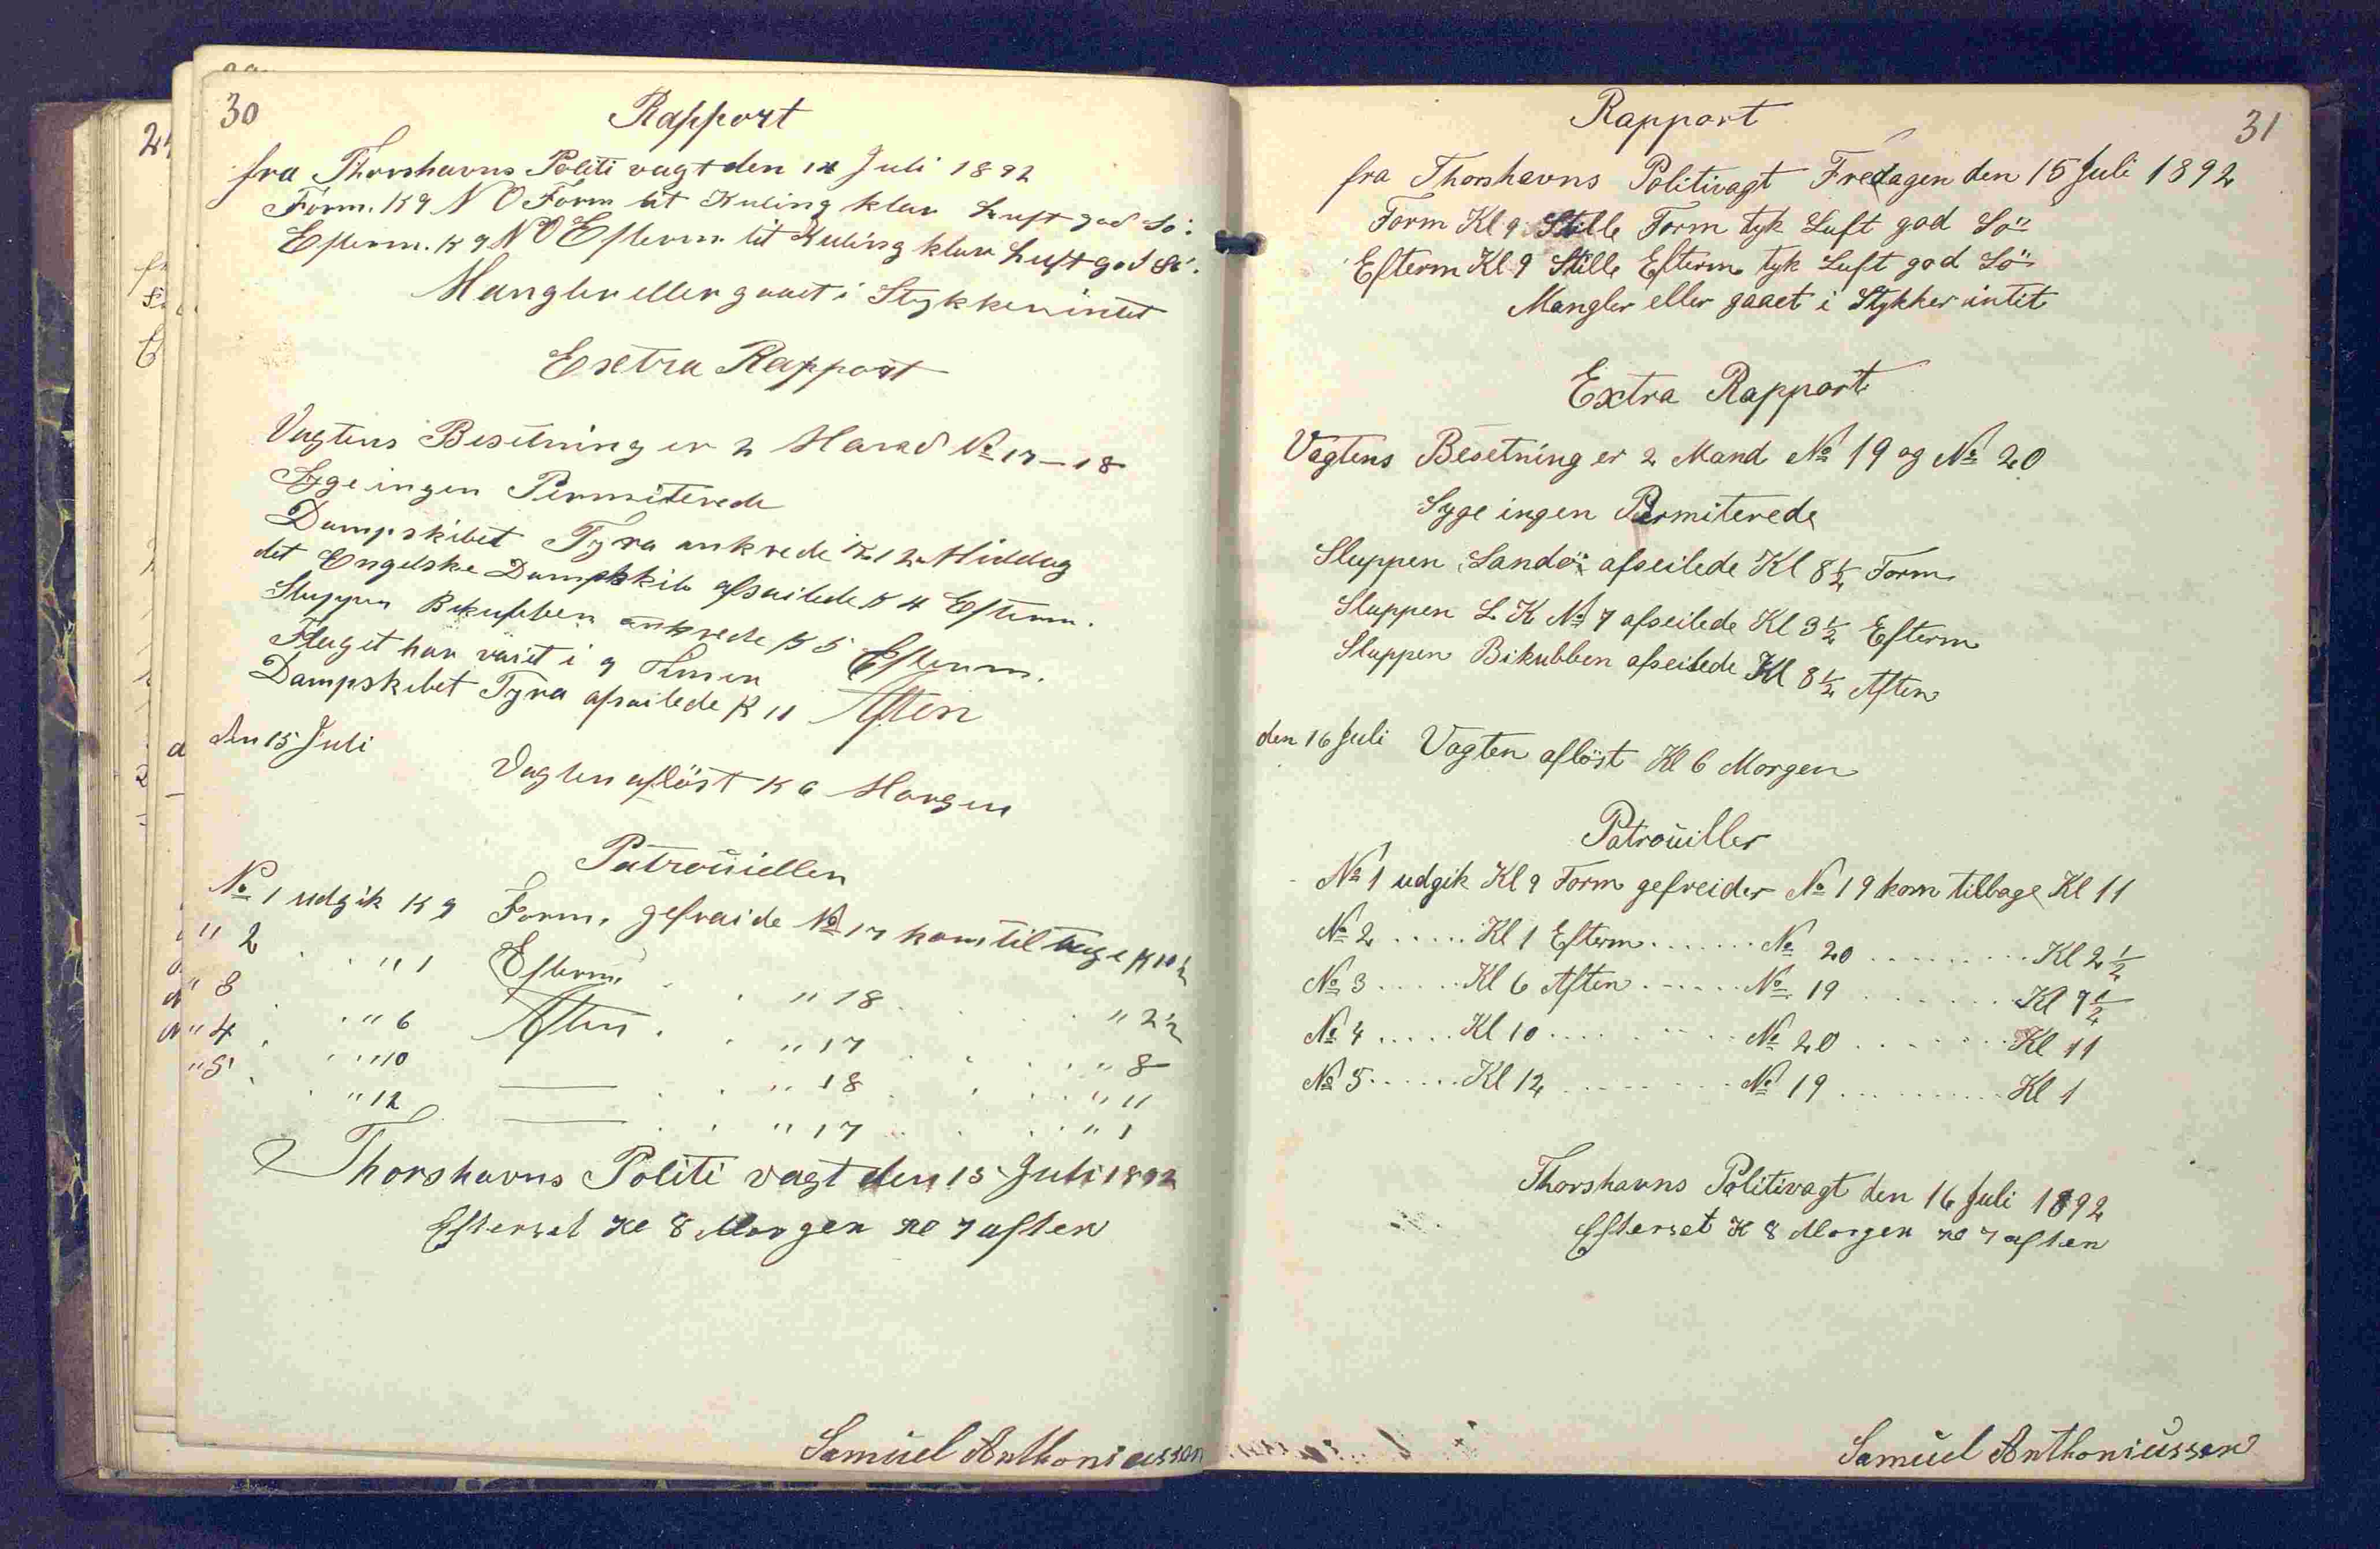 30
Rapport
fra Thorshavns Politi vagt den 14 Juli 1892
Form. K 9 N O Form lit Kuling klar Luft god Sö:
Efterm. K 9 N O Efterm. lit Kuling klar Luft god Sö:
Mangler eller gaaet i Stykker intet
Exetra Rapport
Vagtens Besetning er 2 Mand № 17 – 18
Syge ingen Permiterede
Dampskibet Tyra ankrede K 12 Middag
det Engelske Dampskib afsailede K 4 Efterm.
Sluppen Bikubben ankrede K 5 Efterm.
Flaget har vaiet i 9 Timer
Dampskibet Tyra afsailede K 11 Aften
den 15 Juli
Vagten aflöst K 6 Morgen
Patrouiellen
№ 1 udgik K 9 Form. gefraide № 17 kom tilbage K 10½
" 2 . . " 1 Efterm. . . " 18 . . . " 2½
" 3 . . " 6 Aften . . " 17 . . . " 8
" 4 . . " 10 —— . . " 18 . . . " 11
" 5 . . " 12 —— . . " 17 . . . " 1
Thorshavns Politi vagt den 15 Juli 1892
Efterset Kl 8 Morgen Kl 7 aften
Samuel Anthoniussen
31
Rapport
fra Thorshavns Politivagt Fredagen den 15 Juli 1892
Form Kl 9 Stille Form tyk Luft god Sö:
Efterm Kl 9 Stille Efterm tyk Luft god Sö:
Mangler eller gaaet i Stykker intit
Extra Rapport
Vagtens Besetning er 2 Mand № 19 og № 20
Syge ingen Permiterede
Sluppen Sandö: afseilede Kl 8½ Form
Sluppen L. K № 7 afseilede Kl 3½ Efterm
Sluppen Bikubben afseilede Kl 8½ Aften
den 16 Juli Vagten aflöst Kl 6 Morgen
Patrouiller
№ 1 udgik Kl 9 Form gefreider № 19 kom tilbage Kl 11
№ 2 ..... Kl 1 Efterm ....... № 20 ......... Kl 2½
№ 3 ..... Kl 6 Aften ...... № 19 ........ Kl 7½
№ 4 ..... Kl 10 ......... № 20 ....... Kl 11
№ 5 ...... Kl 12 ........ № 19 .......... Kl 1
Thorshavns Politivagt den 16 Juli 1892
Efterset K 8 Morgen Kl 7 aften
Samuel Anthoniussen